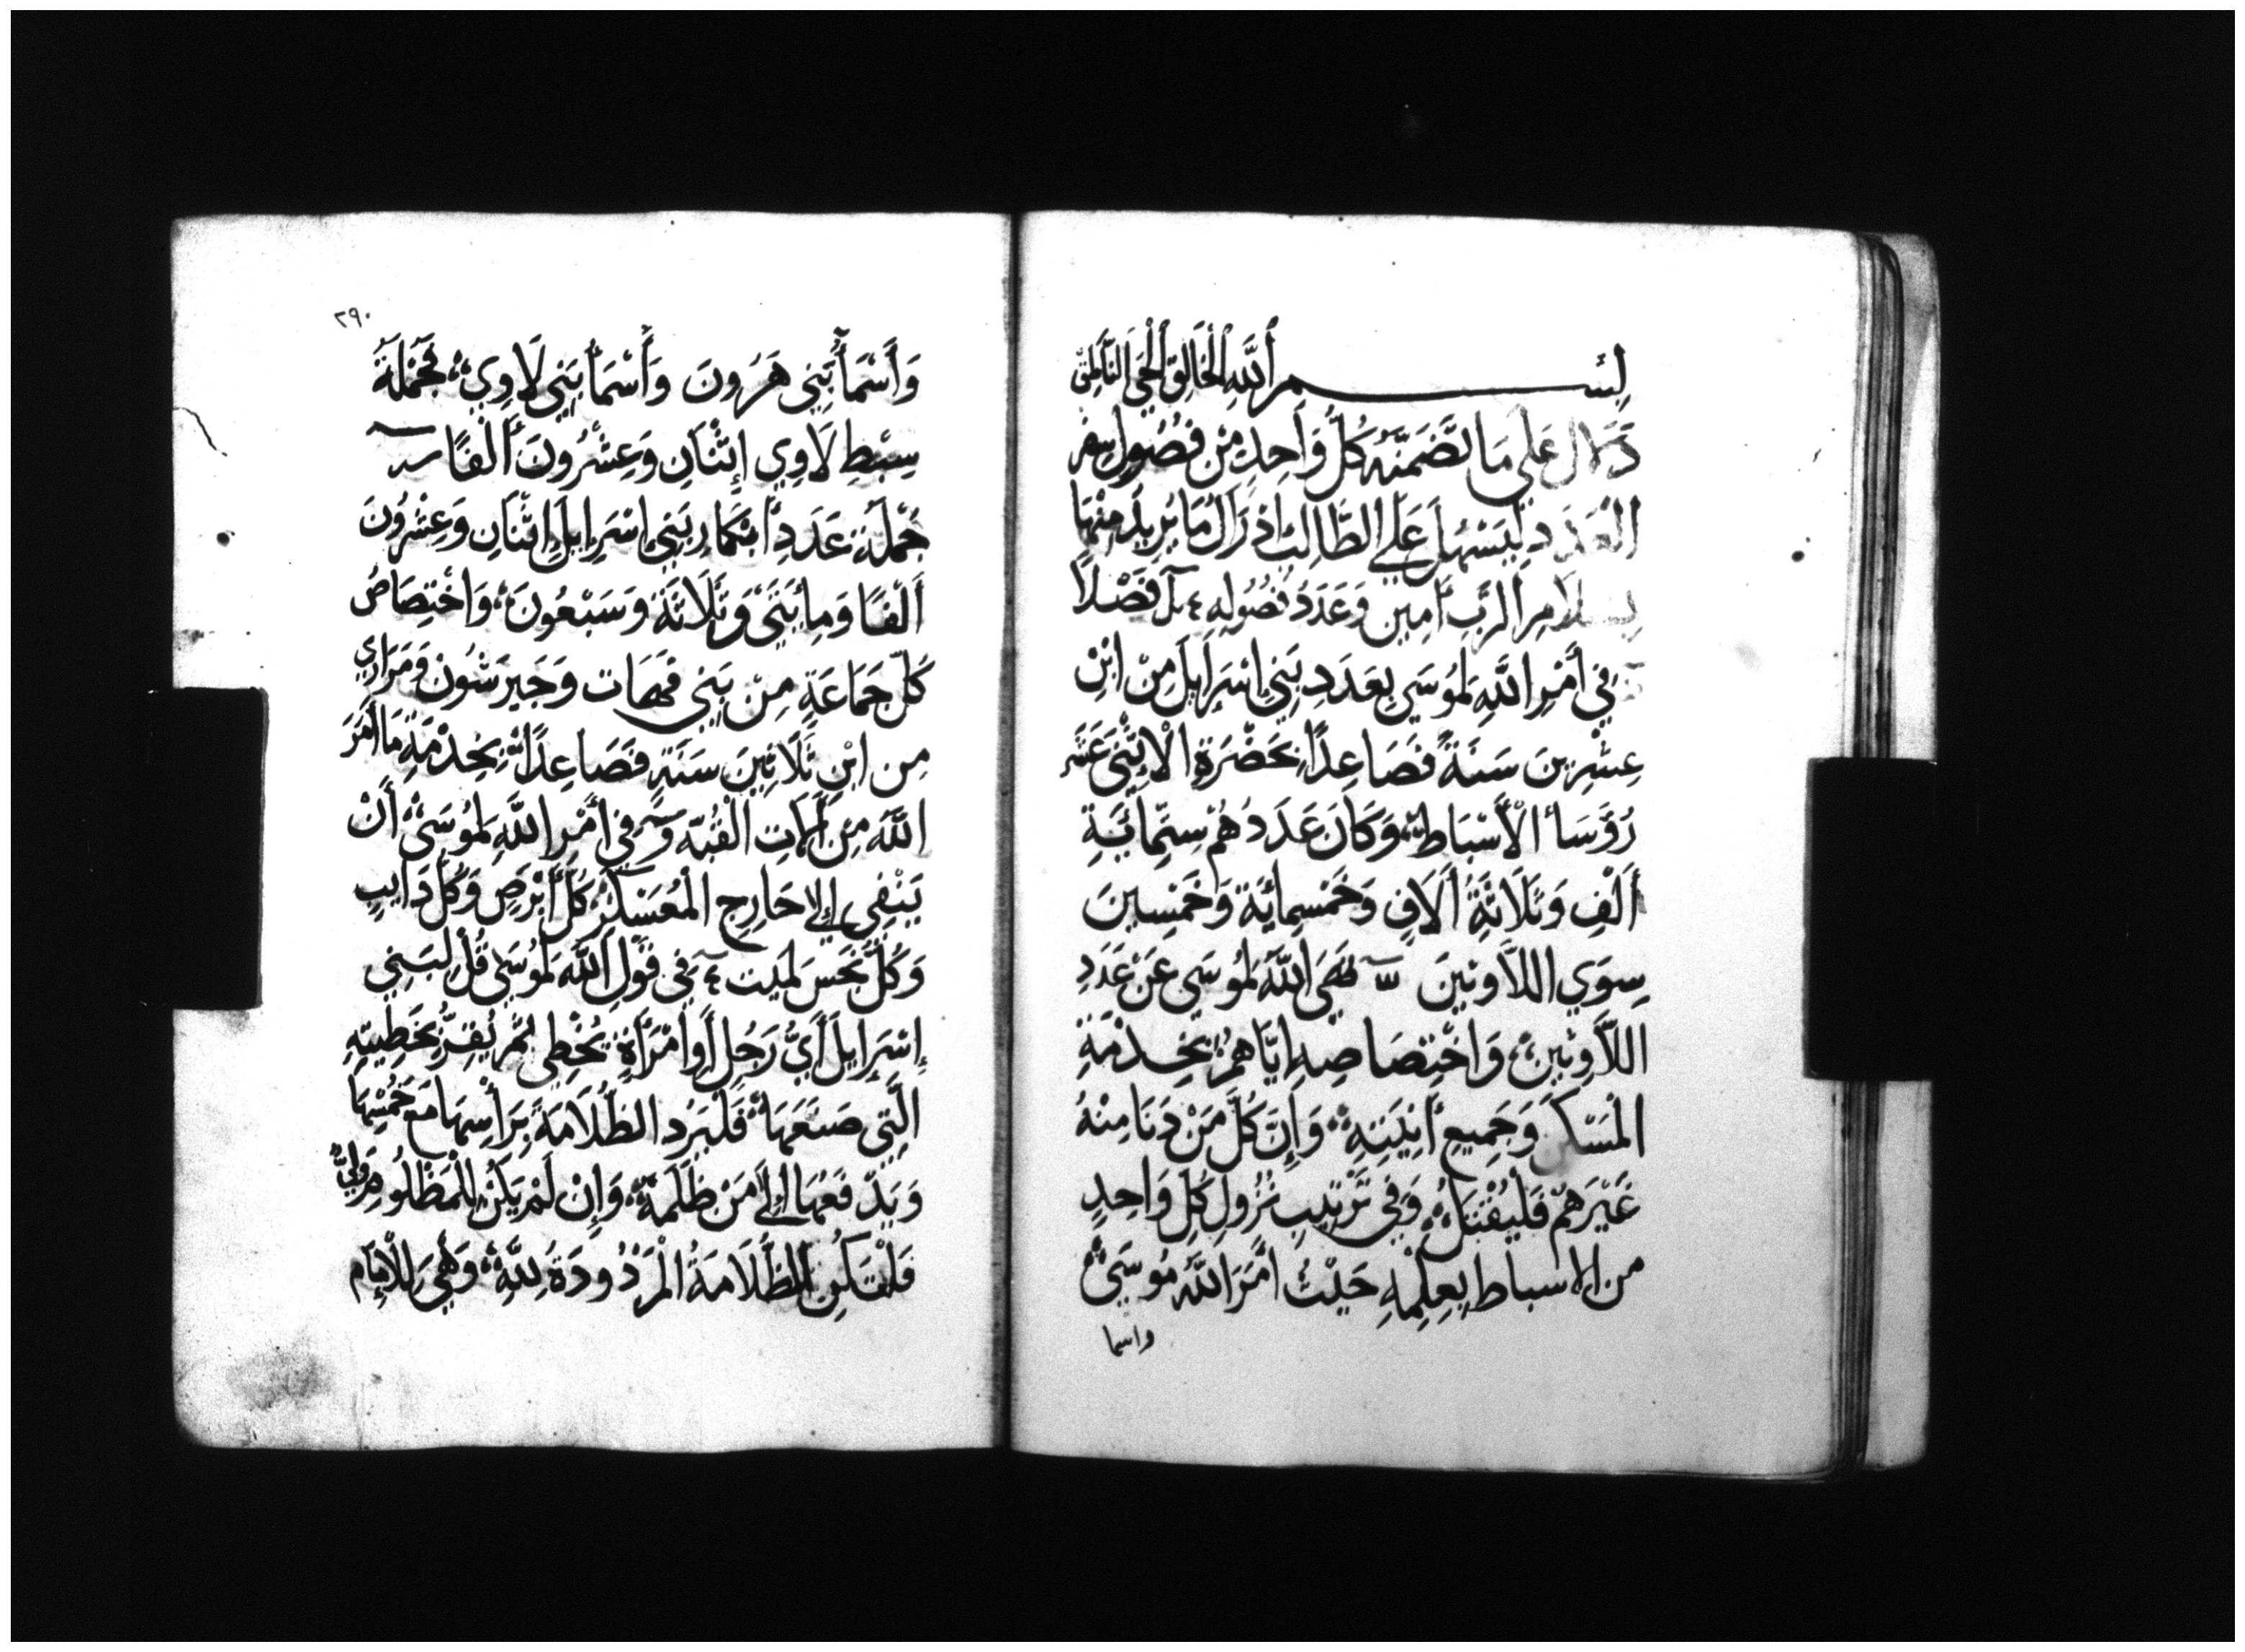 بِسْــــــمِ اللَّهِ الْخَالِقِ الْحَيِّ النَّاطِقِ
عَلَي مَا تَضَمَّنَهُ كُلُّ وَاحِدٍ مِنْ فُصُولِ سِفْرِ
الْعَدَدِ لِيَسْهُلَ عَلَي الطَّالِبِ اذْرَاكُ مَا يُرِيدُ مِنْهَا
بِسَلَامِ الرَّبِّ أَمِين وَعَدَدُ فُصُولِهِ فَصْلاً
فِي أَمْرِ اللَّهِ لِمُوسَي بِعَدَدِ بَنِي إِسْرَايِلَ مِنْ ابْنِ
عِشْرِينَ سَنَةً فَصَاعِدًا بِحَضْرَةِ الْاِثْنَي عَشَر
رُؤَسَأ الْأَسْبَاطِ وَكَانَ عَدَدُهُمْ سِتِّمِائَيَةِ
أَلْفِ وَثَلَاثَةُ أَلَافٍ وَخَمْسِمِائَةَ وَخَمْسِينَ
سِوَي اللَّاوِيينَ نَهَي اللَّهُ لِمُوسَي عَنْ عَدَدِ
اللَّاوِيينَ وَاخْتِصَاصِهِ ايَّاهُمْ بِخِدْمَةِ
الْمَسْكَنِ وَجَمِيعِ أَنِيَتِهِ وَإِنَّ كُلَّ مَنْ دَنَا مِنْهُ
غَيْرَهُمْ فَلْيُقْتَلُ وَفِي تَرْتِيبِ نُزُولِ كُلِّ وَاحِدٍ
من الاسباط بِعِلْمِهِ حَيْثُ أَمَرَ اللَّهُ مُوسَيٰ
واسما
٢٩٠
وَأَسْمَأُ بَنِي هَرُونَ وَأَسْمَأُ بَنِي لَاوِي فَجُمْلَةُ
سِبْطِ لَاوِي إِثْنَانِ وَعِشْرُونَ أَلْفًا
جُمْلَةُ عَدَدِ ابْكَارِ بَنِي إِسْرَايِلَ اِثْنَانِ وَعِشْرُونَ
أَلْفًا وَمِايَتَي وَثَلَاثَةَ وَسَبْعُونَ وَاخْتِصَاصُ
كُلِّ جَمَاعَةٍ مِنْ بَنِي قَهَات وَجَيرَشُون وَمَرَارِي
مِن ابْنِ ثَلَاثِينَ سَنَةٍ فَصَاعِدًا بِخِدْمَةِ مَا أَمَرَ
اللَّهُ مِنْ أَلَاتِ الْقُبَّه فِي أَمْرِ اللَّهِ لِمُوسَيْ أَنْ
يَنْفِي إِلَي خَارِجِ الْمُعَسْكَرْ كُلَّ أَبْرَصٍ وَكُلَّ دَايِبٍ
وَكُلَّ نَجَس لِمَيت فِي قَوْلِ اللَّه لِمُوسَي قُلْ لِبَنِي
إِسْرَايِلَ أَيُّ رَجُلٍ أَوِ امْرَأَةٍ تُخْطِي ثُمَّ يُقِرُّ بِخَطِيتِهِ
الَّتِي صَنَعَهَا فَلْيَرُد الظُّلَامَةَ بِرَأْسِهَا مَعَ خُمْسِهَا
وَيَدْفَعُهَا إِلَي مَنْ ظَلَمَهُ وَإِنْ لَمْ يَكُنْ لِلْمَظْلُومِ وَلِيٌّ
فَلْتَكُنِ الظَّلَامَةُ الْمَرْدُودَةُ لِلَّهِ وَهِيَ لِلْاِمَام